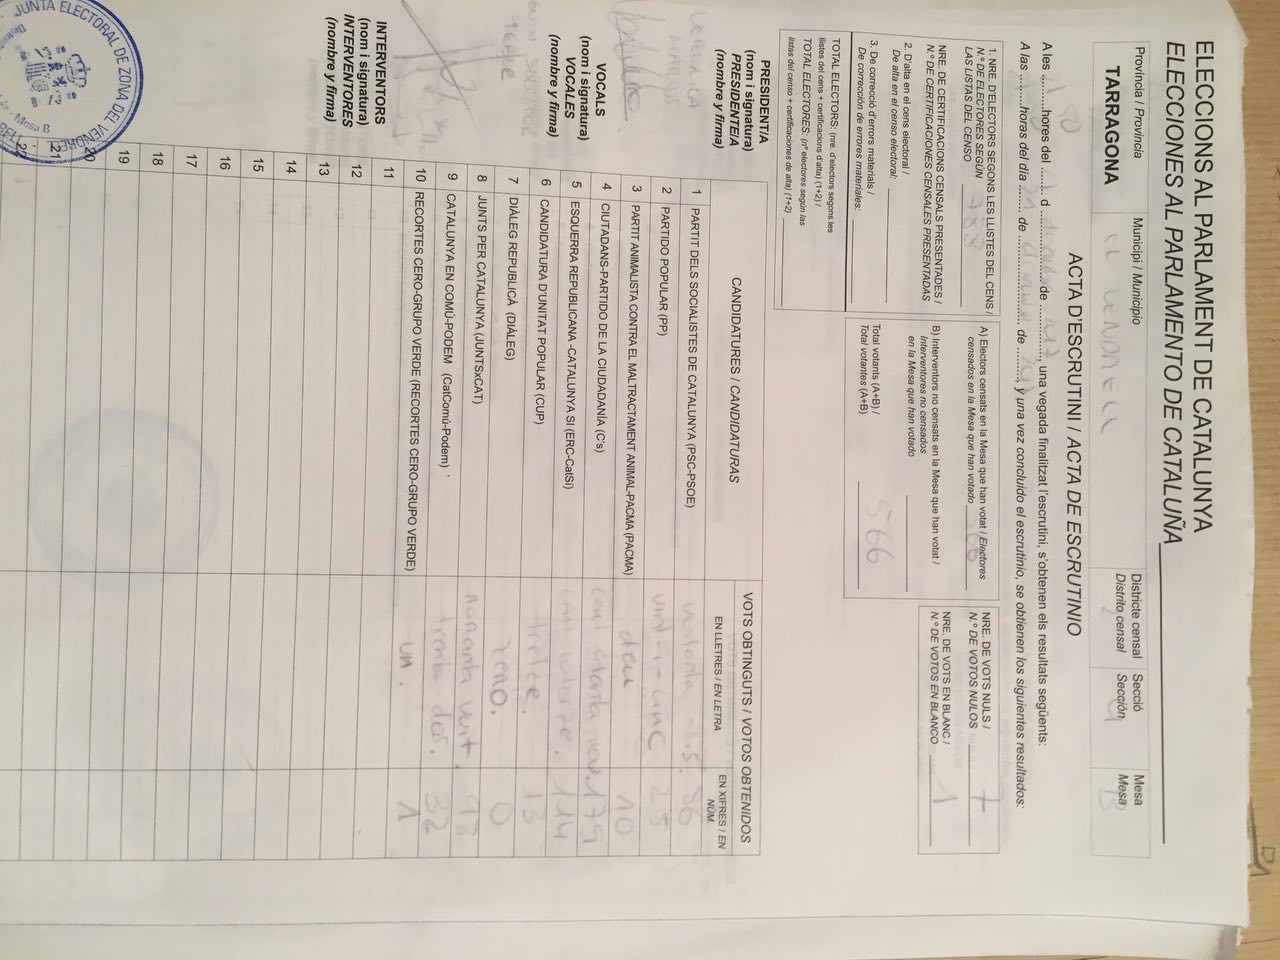 ELECCIONS AL PARLAMENT DE CATALUNYA
ELECCIONES AL PARLAMENTO DE CATALUÑA
Província / Provincia
TARRAGONA
Municipi / Municipio
EL VENDRELL
Districte censal
Distrito censal
2
Secció
Sección
Mesa
Mesa
B
ACTA D'ESCRUTINI / ACTA DE ESCRUTINIO
A les hores del d de , una vegada finalitzat l'escrutini, s'obtenen els resultats següents:
A las horas del día 21 de de , y una vez concluido el escrutinio, se obtienen los siguientes resultados:
1. NRE. D'ELECTORS SEGONS LES LLISTES DEL CENS /
N.º DE ELECTORES SEGÚN
LAS LISTAS DEL CENSO 788
NRE. DE CERTIFICACIONS CENSALS PRESENTADES /
N.º DE CERTIFICACIONES CENSALES PRESENTADAS
2. D'alta en el cens electoral /
De alta en el censo electoral:
3. De correcció d'errors materials /
De corrección de errores materiales:
TOTAL ELECTORS: (nre. d'electors segons les
llistes del cens + certificacions d'alta) (1+2) /
TOTAL ELECTORES: (nº electores según las
listas del censo + certificaciones de alta) (1+2)
A) Electors censats en la Mesa que han votat / Electores
censados en la Mesa que han votado 566
B) Interventors no censats en la Mesa que han votat /
Interventores no censados
en la Mesa que han votado
Total votants (A+B) /
Total votantes (A+B) 566
NRE. DE VOTS NULS /
N.º DE VOTOS NULOS 7
NRE. DE VOTS EN BLANC /
N.º DE VOTOS EN BLANCO 1
PRESIDENT/A
(nom i signatura)
PRESIDENTE/A
(nombre y firma)
VOCALS
(nom i signatura)
VOCALES
(nombre y firma)
INTERVENTORS
(nom i signatura)
INTERVENTORES
(nombre y firma)
CANDIDATURES / CANDIDATURAS
VOTS OBTINGUTS / VOTOS OBTENIDOS
EN LLETRES / EN LETRA
EN XIFRES / EN NÚM.
1 PARTIT DELS SOCIALISTES DE CATALUNYA (PSC-PSOE) vuitanta-sis. 86
2 PARTIDO POPULAR (PP) vint-i-cinc 25
3 PARTIT ANIMALISTA CONTRA EL MALTRACTAMENT ANIMAL-PACMA (PACMA) deu 10
4 CIUTADANS-PARTIDO DE LA CIUDADANÍA (C's) cent nou. 179
5 ESQUERRA REPUBLICANA -CATALUNYA SI (ERC-CatSI) cent catorze. 114
6 CANDIDATURA D'UNITAT POPULAR (CUP) tretze. 13
7 DIÀLEG REPUBLICÀ (DIÀLEG) zero. 0
8 JUNTS PER CATALUNYA (JUNTSxCAT) noranta vuit. 98
9 CATALUNYA EN COMÚ-PODEM (CatComú-Podem) trenta dos. 32
10 RECORTES CERO-GRUPO VERDE (RECORTES CERO-GRUPO VERDE) un. 1
11
12
13
14
15
16
17
18
19
20
21
22
JUNTA ELECTORAL DE ZONA DEL VENDRELL
Mesa B